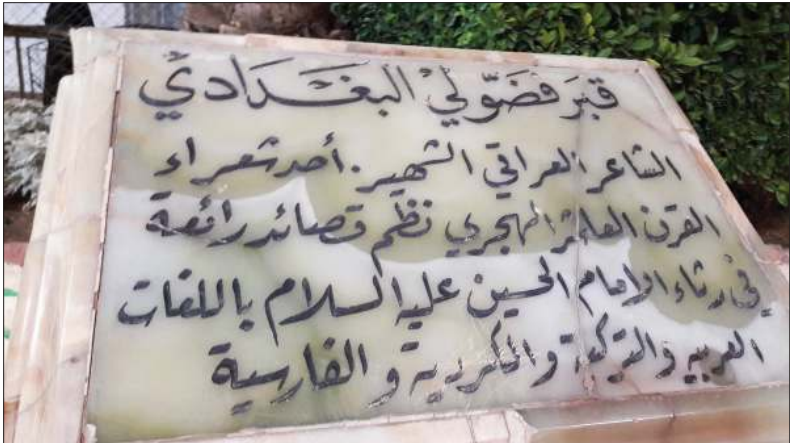 قبر فضولي البغدادي
الشاعر العراقي الشهير. أحد شعراء
القرن العاشر الهجري نظم قصائد رائعة
في رثاء الإمام الحسين عليه السلام باللغات
العربيه والتركية والكردية والفارسية